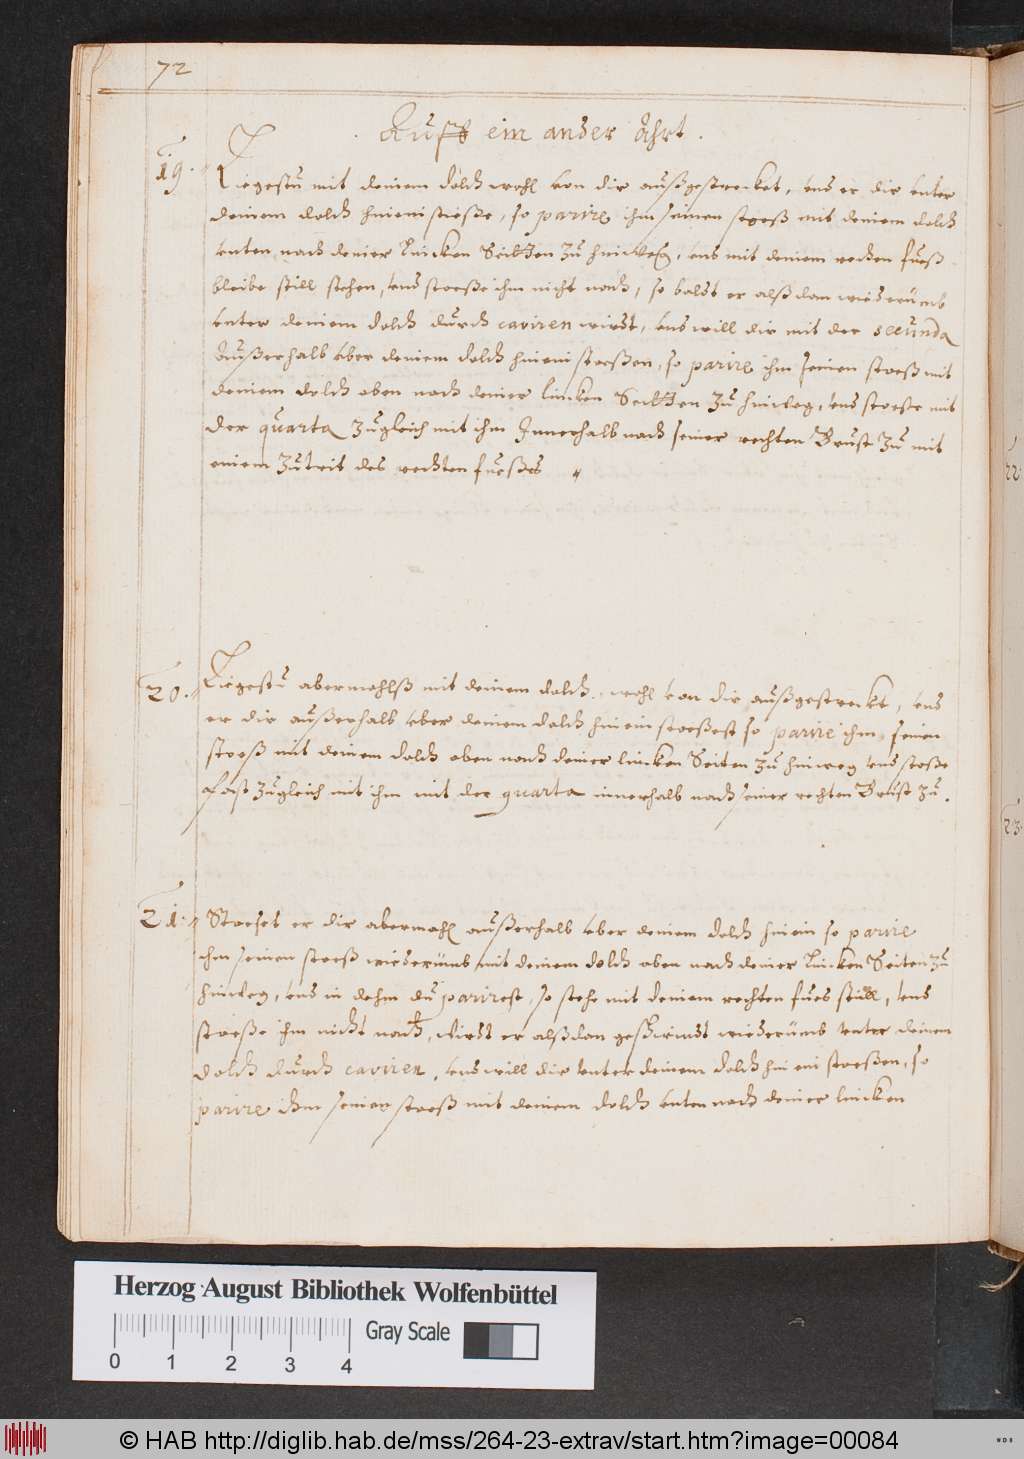 72
Auff ein ander Ahrt.
19. Liegestu mit deinem dolch wohl von dir außgestrecket, vnd er dir vnter
deinem dolch hinein stoeße, so parire ihm seinen stoeß mit deinem dolch
vnten nach deiner lincken Seitten zu hinweg, vnd mit deinem rechten fueß
bleibe still stehen, vnd stoeße ihm nicht nach, so baldt er alßdan wiederumb
vnter deinem dolch durch caviren wirdt, vnd will dir mit der secunda
außerhalb vber deinem dolch hinein stoeßen, so parire ihm seinen stoeß mit
deinem dolch oben nach deiner lincken Seitten zu hinweg, vnd stoeße mit
der quarta zugleich mit ihm Innerhalb nach seiner rechten Brust zu mit
einem zutrit des rechten fueßes
20. Liegestu abermahlß mit deinem dolch wohl von dir außgestreckt, vnd
er dir außerhalb vber deinem dolch hinein stoeßest so parire ihm seinen
stoeß mit deinem dolch oben nach deiner lincken Seiten zu hinweg vnd stoße
fast zugleich mit ihm mit der quarta innerhalb nach seiner rechten Brust zu.
21. Stoeset er dir abermahl außerhalb vber deinem dolch hinein so parire
ihm seinen stoeß wiederumb mit deinem dolch oben nach deiner lincken Seiten zu
hinweg, vnd in dehm du parirest, so stehe mit deinem rechten fues still, vnd
stoeße ihm nicht nach, wirdt er alßdan geschwindt wiederumb vnter deinem
dolch durch caviren, vnd will dir vnter deinem dolch hinein stoeßen, so
parire ihm seinen stoeß mit deinem dolch vnten nach deiner lincken
22.
23.
Herzog August Bibliothek Wolfenbüttel
Gray Scale
0 1 2 3 4
© HAB http://diglib.hab.de/mss/264-23-extrav/start.htm?image=00084